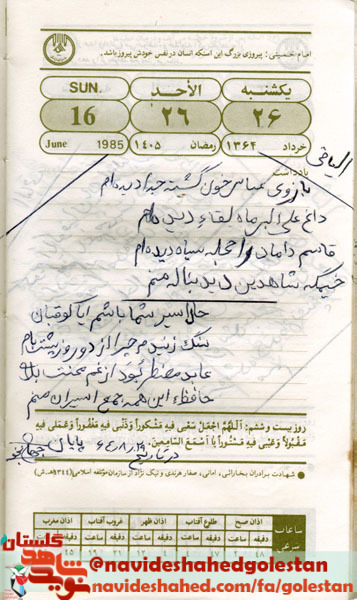 امام خمینی: پیروزی بزرگ این است که انسان در نفس خودش پیروز باشد.
یکشنبه
الأحد
SUN.
۲۶
٢٦
16
خرداد ۱۳۶۴
رمضان ۱۴۰۵
June 1985
یادداشت
بازوی عباس خون گشته جدا دیده‌ام
داغ علی اکبر ماه لقاء دیده‌ام
قاسم داماد را حجله سیاه دیده‌ام
شاهدین دید
حال اسیر شما باشم ایا کوفیان
سنگ زنیدم چرا از در و روز پشت بام
عابد مضطر بود از غم محنت
حافظ این همه جمع اسیران منم
روز بیست و ششم: اَللّهُمَّ اجْعَلْ سَعْیی فیهِ مَشْکُوراً وَ ذَنْبی فیهِ مَغْفُوراً وَ عَمَلی فیهِ
مَقْبُولاً وَ عَیْبی فیهِ مَسْتُوراً یا اَسْمَعَ السّامِعینَ.
در تاریخ پایان
شهادت برادران بخارائی، امانی، صفار هرندی و نیک نژاد از سازمان مؤتلفه اسلامی (۱۳۴۴ هـ.ش)
ساعات شرعی
اذان صبح
طلوع آفتاب
اذان ظهر
غروب آفتاب
اذان مغرب
ساعت دقیقه ساعت دقیقه ساعت دقیقه ساعت دقیقه ساعت دقیقه
نوید شاهد
گلستان
@navideshahedgolestan
navideshahed.com/fa/golestan